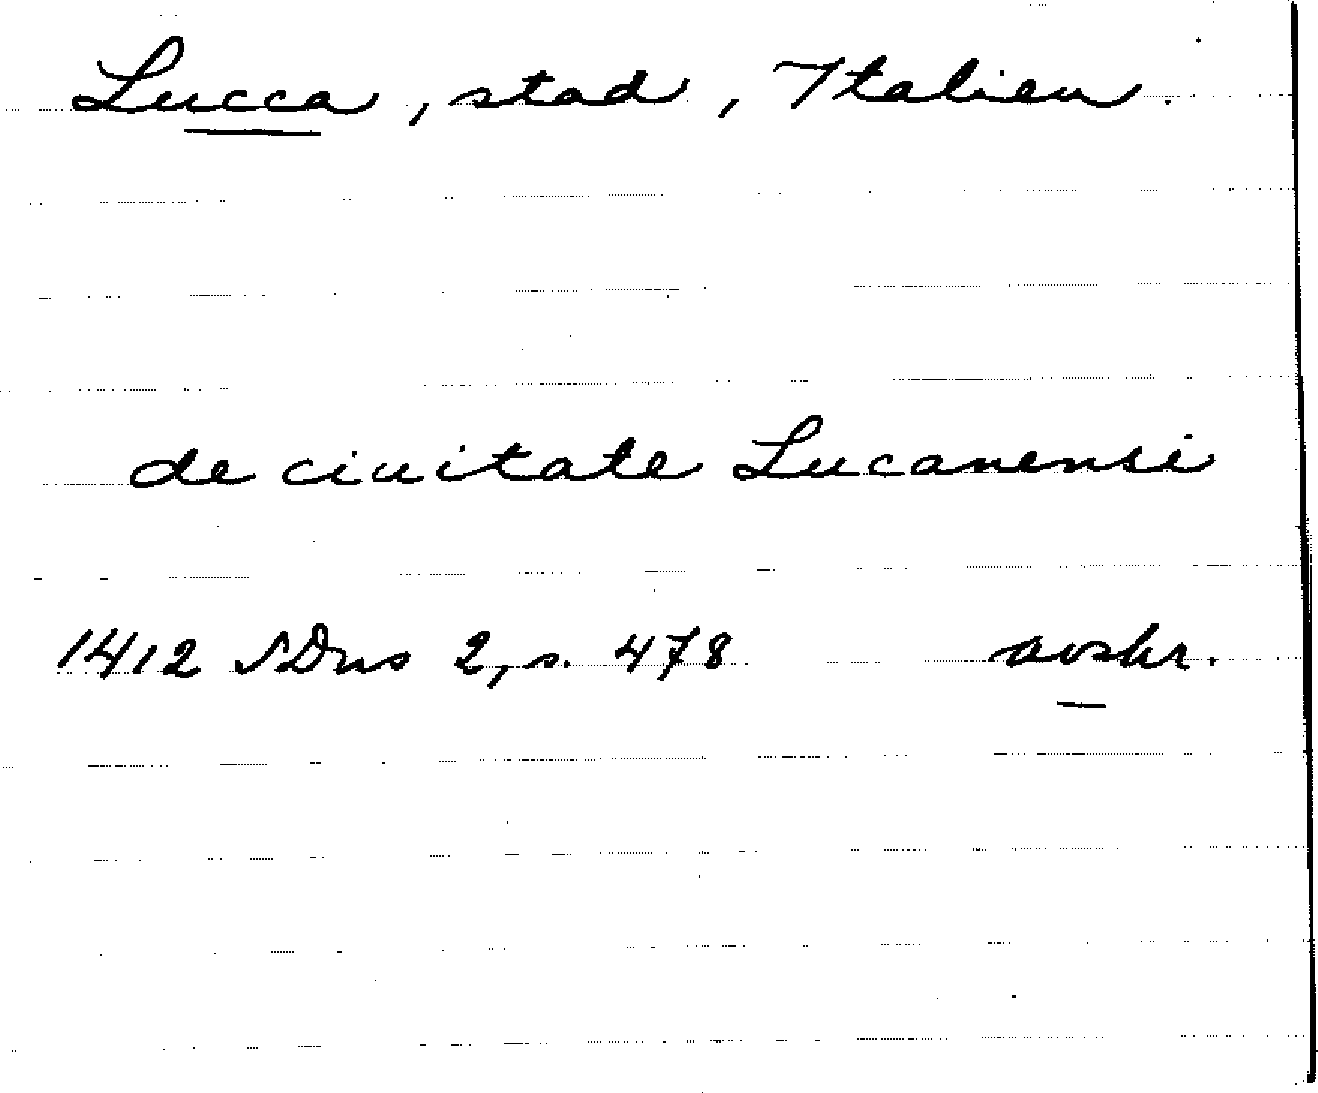 Lucca, stad, Italien.
de ciuitate Lucanensi
1412 SDns 2, s. 478 avskr.